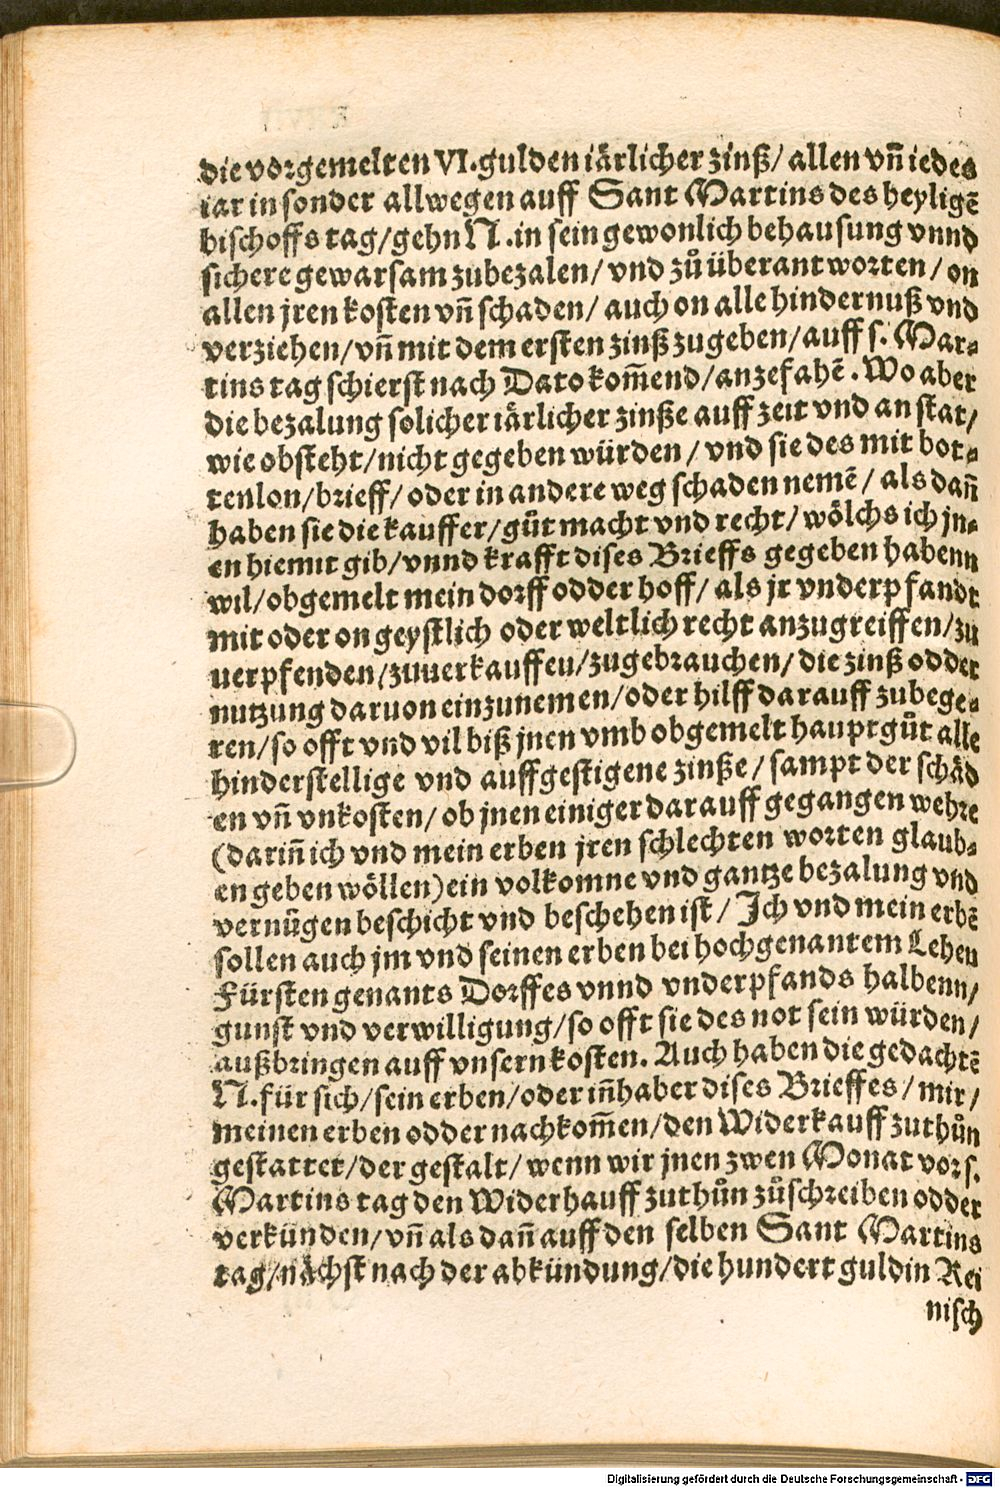 die vorgemelten VI.gulden iärlicher zinß/ allen vn̄ iedes
iar in sonder allwegen auff Sant Martins des heyligē
bischoffs tag/gehn N.in sein gewonlich behausung vnnd
sichere gewarsam zubezalen/ vnd zů überantworten/ on
allen jren kosten vn̄ schaden/ auch on alle hindernuß vnd
verziehen/vn̄ mit dem ersten zinß zugeben/auff s. Mar⸗
tins tag schierst nach Dato kom̄end/anzefahē. Wo aber
die bezalung solicher iärlicher zinße auff zeit vnd an stat/
wie obsteht/nicht gegeben würden/ vnd sie des mit bot⸗
tenlon/brieff/ oder in andere weg schaden nemē/ als dan̄
haben sie die kauffer/gůt macht vnd recht/ wölchs ich jn⸗
en hiemit gib/vnnd krafft dises Brieffs gegeben habenn
wil/obgemelt mein dorff odder hoff/ als jr vnderpfandt
mit oder on geystlich oder weltlich recht anzugreiffen/zu
uerpfenden/zuuerkauffen/zugebrauchen/ die zinß odder
nutzung daruon einzunemen/oder hilff darauff zubege⸗
ren/so offt vnd vil biß jnen vmb obgemelt hauptgůt alle
hinderstellige vnd auffgestigene zinße/ sampt der schäd
en vn̄ vnkosten/ ob jnen einiger darauff gegangen wehre
(darin̄ ich vnd mein erben jren schlechten worten glaub⸗
en geben wöllen)ein volkomne vnd gantze bezalung vnd
vernügen beschicht vnd beschehen ist/ Ich vnd mein erbē
sollen auch jm vnd seinen erben bei hochgenantem Lehen
Fürsten genants Dorffes vnnd vnderpfands halbenn/
gunst vnd verwilligung/so offt sie des not sein würden/
außbringen auff vnsern kosten. Auch haben die gedachtē
N.für sich/sein erben/oder in̄haber dises Brieffes/ mir/
meinen erben odder nachkom̄en/den Widerkauff zuthůn
gestattet/der gestalt/ wenn wir jnen zwen Monat vor s.
Martins tag den Widerhauff zuthůn zůschreiben odder
verkünden/vn̄ als dan̄ auff den selben Sant Martins
tag/nächst nach der abkündung/die hundert guldin Rei
nisch
Digitalisierung gefördert durch die Deutsche Forschungsgemeinschaft - DFG